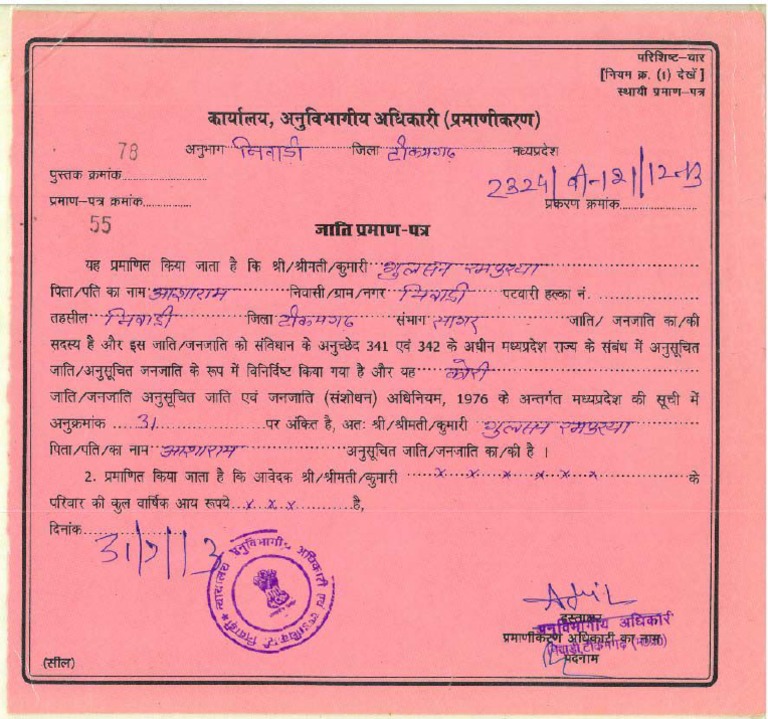 परिशिष्ट–चार
[नियम क्र. (1) देखें ]
स्थायी प्रमाण–पत्र
कार्यालय, अनुविभागीय अधिकारी (प्रमाणीकरण)
अनुभाग निवाडी जिला टीकमगढ मध्यप्रदेश
78
पुस्तक क्रमांक
2324/बी-121/12-13
प्रमाण–पत्र क्रमांक
प्रकरण क्रमांक
55
जाति प्रमाण-पत्र
यह प्रमाणित किया जाता है कि श्री/श्रीमती/कुमारी गुलसन रमपुरया
पिता/पति का नाम आशाराम निवासी/ग्राम/नगर निवाडी पटवारी हल्का नं.
तहसील निवाडी जिला टीकमगढ संभाग सागर जाति/ जनजाति का/की
सदस्य है और इस जाति/जनजाति को संविधान के अनुच्छेद 341 एवं 342 के अधीन मध्यप्रदेश राज्य के संबंध में अनुसूचित
जाति/अनुसूचित जनजाति के रूप में विनिर्दिष्ट किया गया है और यह कोरी
जाति/जनजाति अनुसूचित जाति एवं जनजाति (संशोधन) अधिनियम, 1976 के अन्तर्गत मध्यप्रदेश की सूची में
अनुक्रमांक 31 पर अंकित है, अतः श्री/श्रीमती/कुमारी गुलसन रमपुरया
पिता/पति/का नाम आशाराम अनुसूचित जाति/जनजाति का/की है ।
2. प्रमाणित किया जाता है कि आवेदक श्री/श्रीमती/कुमारी x x x x x x के
परिवार की कुल वार्षिक आय रूपये x x x है,
दिनांक
न्यायालय अनुविभागीय अधिकारी एवं
हस्ताक्षर
अनुविभागीय अधिकारी
प्रमाणीकरण अधिकारी का नाम
पदनाम
(सील)